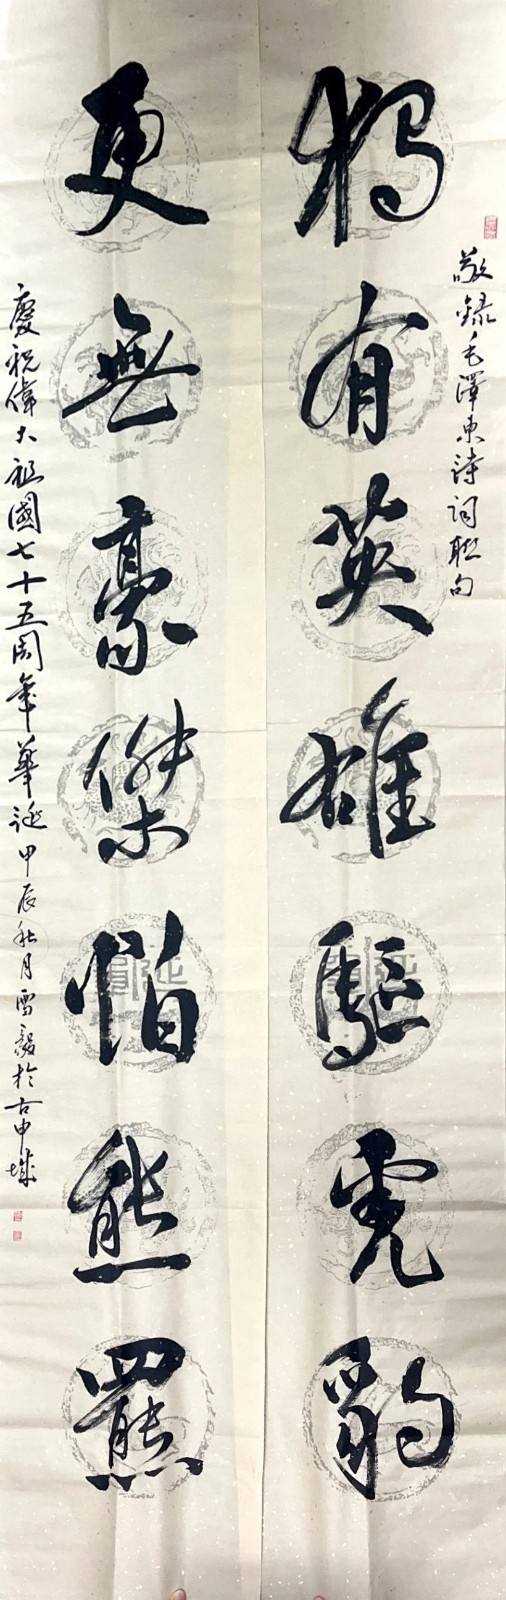 敬録毛澤東詩詞聯句
獨有英雄驅虎豹
更無豪傑怕熊羆
慶祝偉大祖國七十五周年華誕甲辰秋月雪毅於古申城